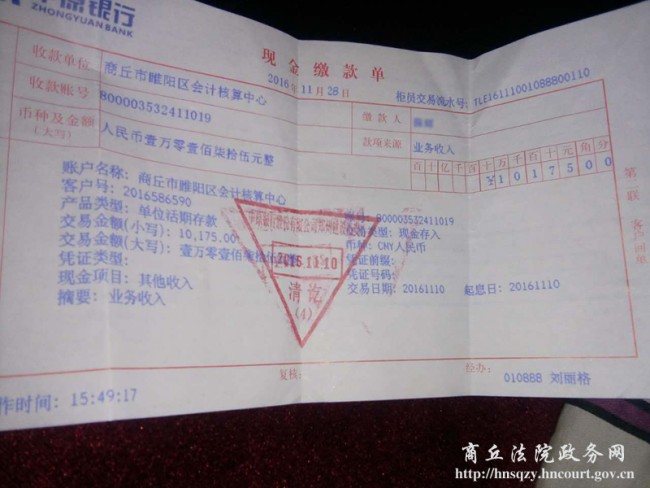 中原银行
ZHONGYUAN BANK
现金缴款单
2016年11月28日
柜员交易流水号: TLE16111001088800110
收款单位
商丘市睢阳区会计核算中心
缴款人
收款账号
800003532411019
款项来源
业务收入
币种及金额
(大写)
人民币壹万零壹佰柒拾伍元整
百十亿千百十万千百十元角分
¥1017500
账户名称: 商丘市睢阳区会计核算中心
客户号: 2016586590
800003532411019
产品类型: 单位活期存款
交易类型: 现金存入
交易金额(小写): 10,175.00
币种: CNY人民币
交易金额(大写): 壹万零壹佰柒拾伍元整
凭证前缀:
凭证类型:
凭证号码:
现金项目: 其他收入
交易日期: 20161110
起息日: 20161110
摘要: 业务收入
清讫
(4)
第二联 客户回单
复核:
经办:
010888 刘丽格
作时间: 15:49:17
商丘法院政务网
http://hnsqzy.hncourt.gov.cn